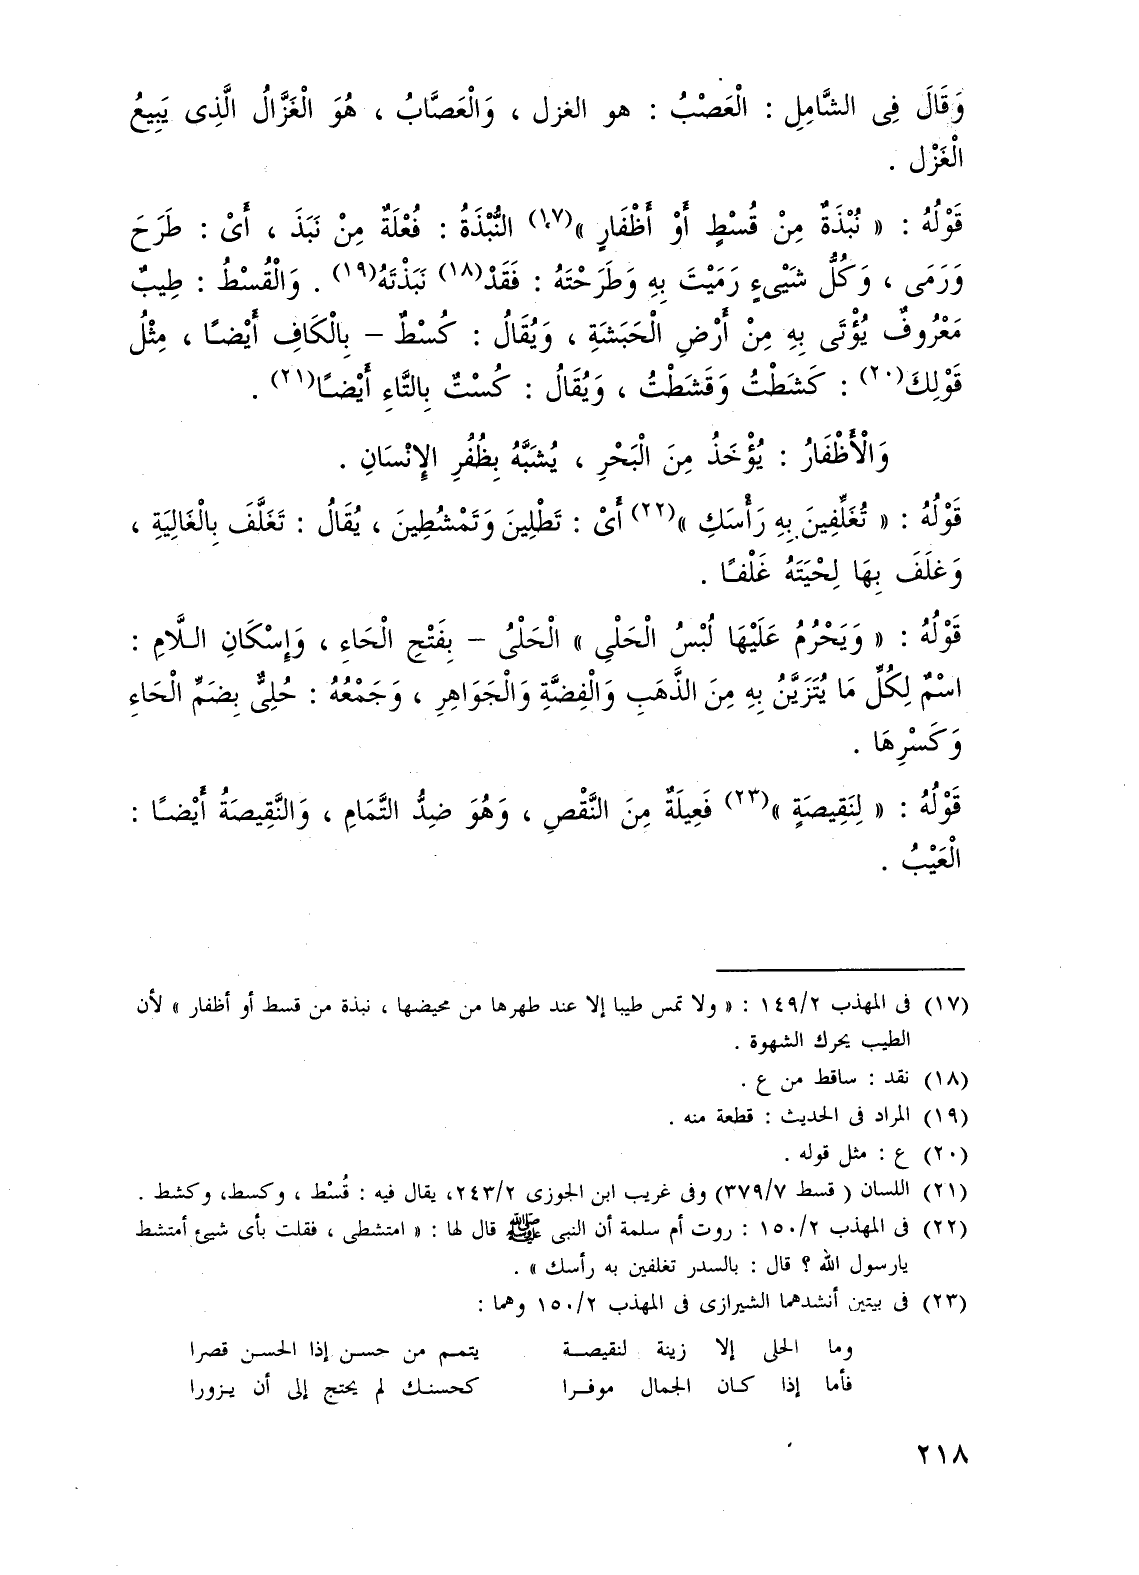 وَقَالَ فِى الشَّامِلِ : الْعَصْبُ : هو الغزل ، وَالْعَصَّابُ ، هُوَ الْغَزَّالُ الَّذِى يَبِيعُ
الْغَزْل .
قَوْلُهُ : « نُبْذَةٌ مِنْ قُسْطٍ أَوْ أَظْفَارٍ »(١٧) النُّبْذَةُ : فُعْلَةٌ مِنْ نَبَذَ ، أَىْ : طَرَحَ
وَرَمَى ، وَكُلُّ شَيْىءٍ رَمَيْتَ بِهِ وَطَرَحْتَهُ : فَقَدْ(١٨) نَبَذْتَهُ(١٩) . وَالْقُسْطُ : طِيبٌ
مَعْرُوفٌ يُؤْتَى بِهِ مِنْ أَرْضِ الْحَبَشَةِ ، وَيُقَالُ : كُسْطٌ – بِالْكَافِ أَيْضًا ، مِثْلُ
قَوْلِكَ(٢٠) : كَشَطْتُ وَقَشَطْتُ ، وَيُقَالُ : كُسْتٌ بِالتَّاءِ أَيْضًا(٢١) .
وَالْأَظْفَارُ : يُؤْخَذُ مِنَ الْبَحْرِ ، يُشَبَّهُ بِظُفُرِ الإِنْسَانِ .
قَوْلُهُ : « تُغَلِّفِينَ بِهِ رَأْسَكِ »(٢٢) أَىْ : تَطْلِينَ وَتَمْشُطِينَ ، يُقَالُ : تَغَلَّفَ بِالْغَالِيَةِ ،
وَغَلَفَ بِهَا لِحْيَتَهُ غَلْفًا .
قَوْلُهُ : « وَيَحْرُمُ عَلَيْهَا لُبْسُ الْحَلْىِ » الْحَلْىُ – بِفَتْحِ الْحَاءِ ، وَإِسْكَانِ الـلَّامِ :
اسْمٌ لِكُلِّ مَا يُتَزَيَّنُ بِهِ مِنَ الذَّهَبِ وَالْفِضَّةِ وَالْجَوَاهِرِ ، وَجَمْعُهُ : حُلِىٌّ بِضَمِّ الْحَاءِ
وَكَسْرِهَا .
قَوْلُهُ : « لِنَقِيصَةٍ »(٢٣) فَعِيلَةٌ مِنَ النَّقْصِ ، وَهُوَ ضِدُّ التَّمَامِ ، وَالنَّقِيصَةُ أَيْضًا :
الْعَيْبُ .
(١٧) فى المهذب ١٤٩/٢ : « ولا تمس طيبا إلا عند طهرها من محيضها ، نبذة من قسط أو أظفار » لأن
الطيب يحرك الشهوة .
(١٨) نقد : ساقط من ع .
(١٩) المراد فى الحديث : قطعة منه .
(٢٠) ع : مثل قوله .
(٢١) اللسان ( قسط ٣٧٩/٧) وفى غريب ابن الجوزى ٢٤٣/٢، يقال فيه : قُسْط ، وكسط، وكشط .
(٢٢) فى المهذب ١٥٠/٢ : روت أم سلمة أن النبى ﷺ قال لها : « امتشطى ، فقلت بأى شيئ أمتشط
يارسول الله ؟ قال : بالسدر تغلفين به رأسك » .
(٢٣) فى بيتين أنشدهما الشيرازى فى المهذب ١٥٠/٢ وهما :
وما الحلى إلا زينة لنقيصـة يتمـم من حسـن إذا الحسـن قصرا
فأما إذا كـان الجمال موفـرا كحسنـك لم يحتج إلى أن يـزورا
٢١٨